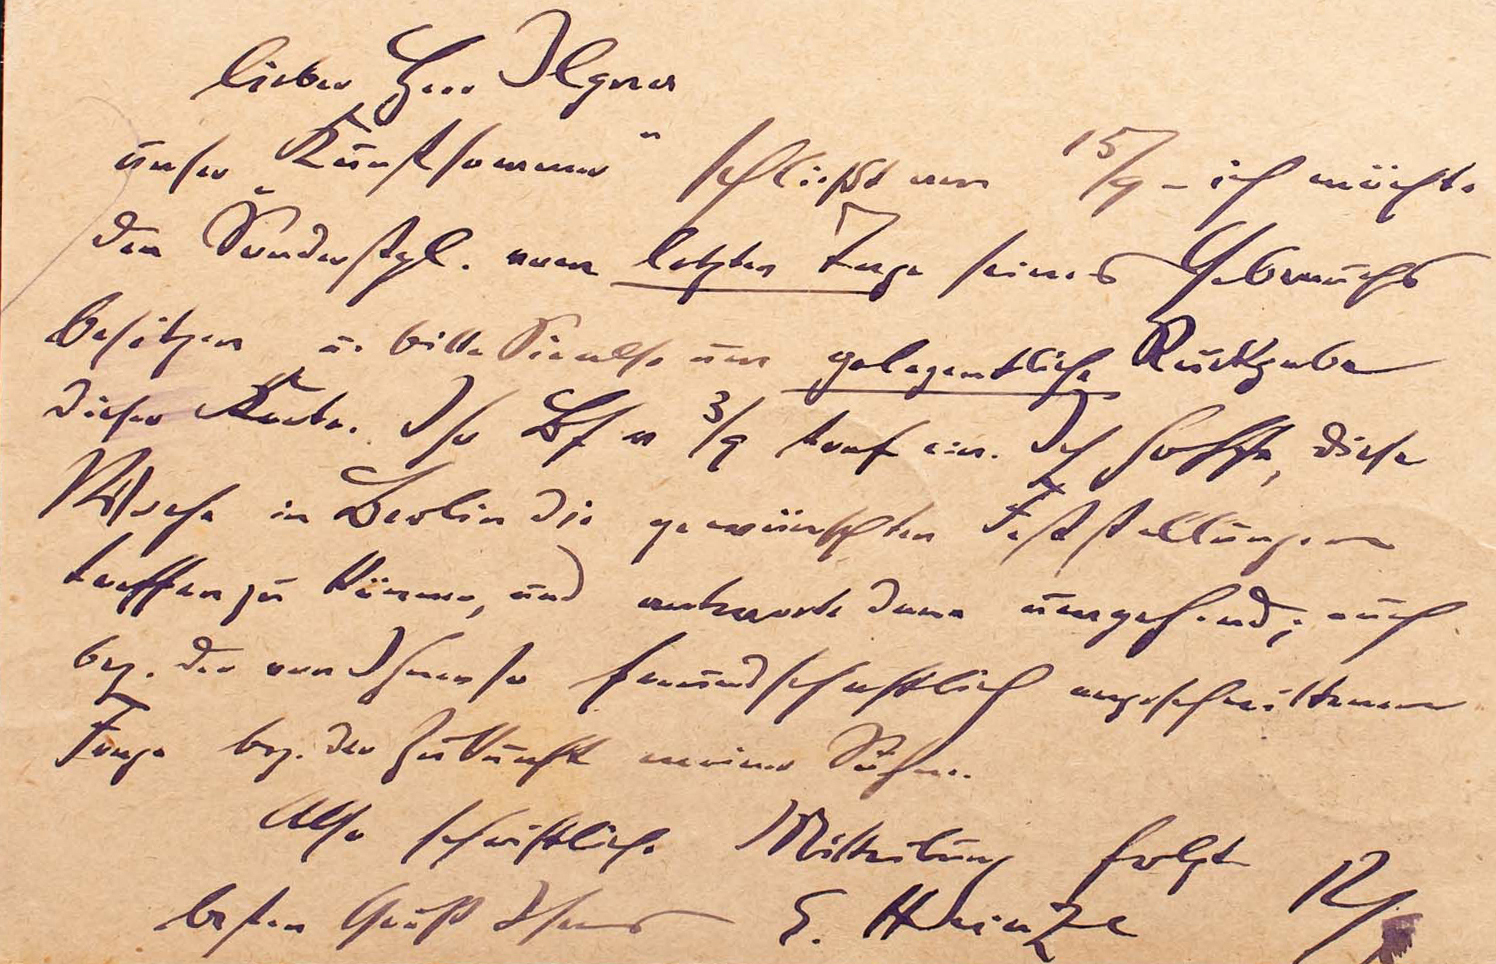 lieber Herr Ilgner
unser "Kunstsommer" schließt am 15/9 – ich möchte
den Sonderstpl. vom letzten Tage seines Gebrauchs
besitzen u. bitte Sie also um gelegentliche Rückgabe
dieser Karte. Ihr Bf v 3/9 traf ein. Ich hoffe, diese
Woche in Berlin die gewünschten Feststellungen
treffen zu können, und antworte dann umgehend; auch
bez. der von Ihnen so freundschaftlich angeschnittenen
Frage bez. der Zukunft meiner Söhne.
Also schriftliche Mitteilung folgt
besten Gruß Ihres E. Heinze